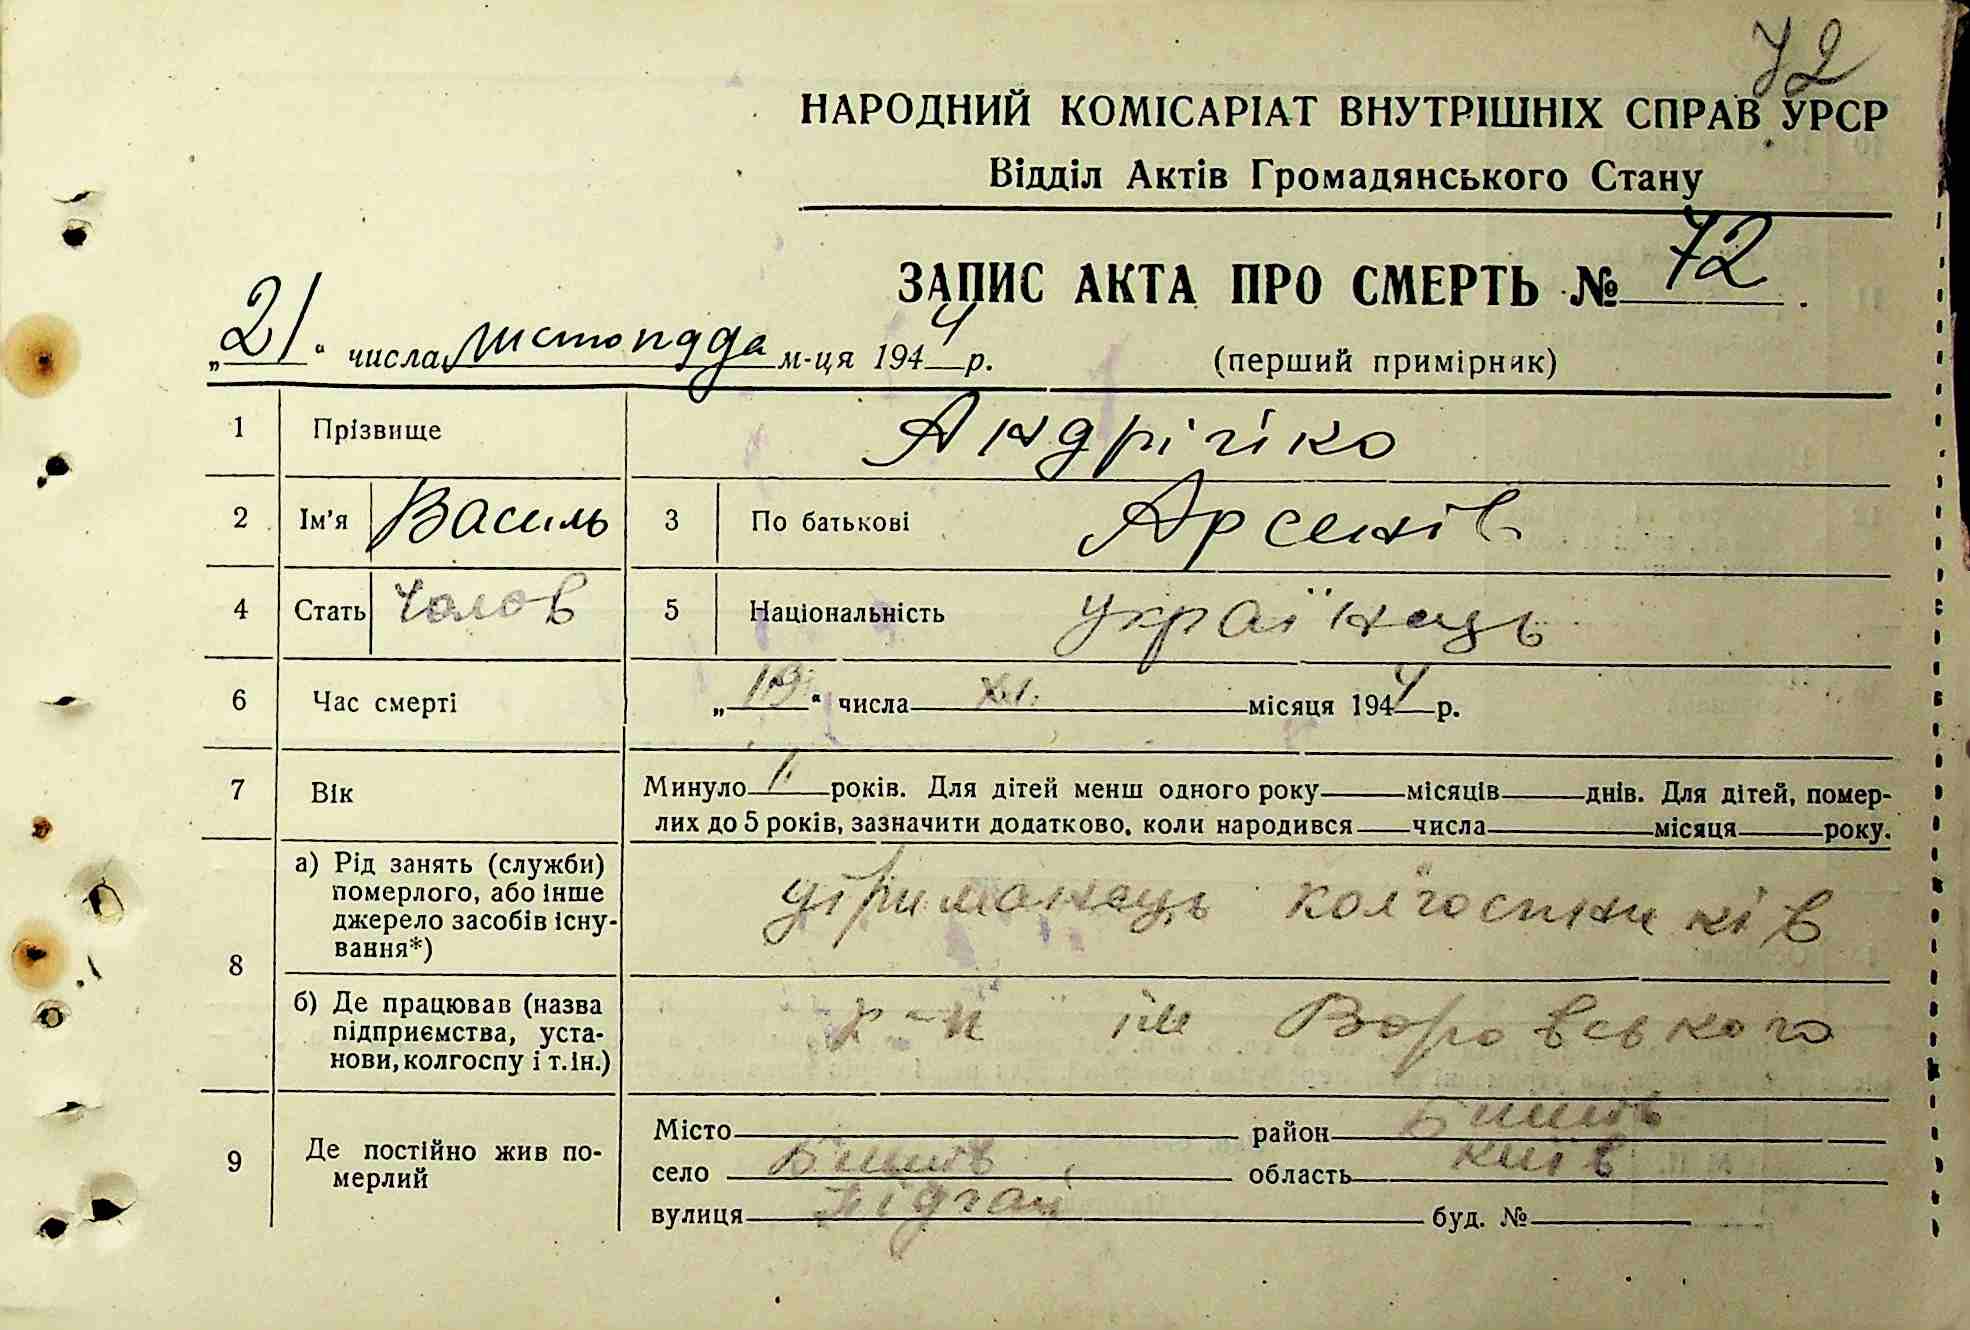 72
НАРОДНИЙ КОМІСАРІАТ ВНУТРІШНІХ СПРАВ УРСР
Відділ Актів Громадянського Стану
ЗАПИС АКТА ПРО СМЕРТЬ № 72.
„21“ числа листопада м-ця 1944 р. (перший примірник)
1 Прізвище Андрійко
2 Ім'я Василь 3 По батькові Арсенів
4 Стать Чолов 5 Національність українець
6 Час смерті „19“ числа XI. місяця 1944 р.
7 Вік Минуло 1 років. Для дітей менш одного року — місяців — днів. Для дітей, помер-
лих до 5 років, зазначити додатково, коли народився — числа — місяця — року.
8 а) Рід занять (служби)
померлого, або інше
джерело засобів існу-
вання*) утриманець колгоспників
б) Де працював (назва
підприємства, уста-
нови, колгоспу і т.ін.) ім Воровського
9 Де постійно жив по-
мерлий
Місто район Бишів
село Бишів область Київ
вулиця буд. №